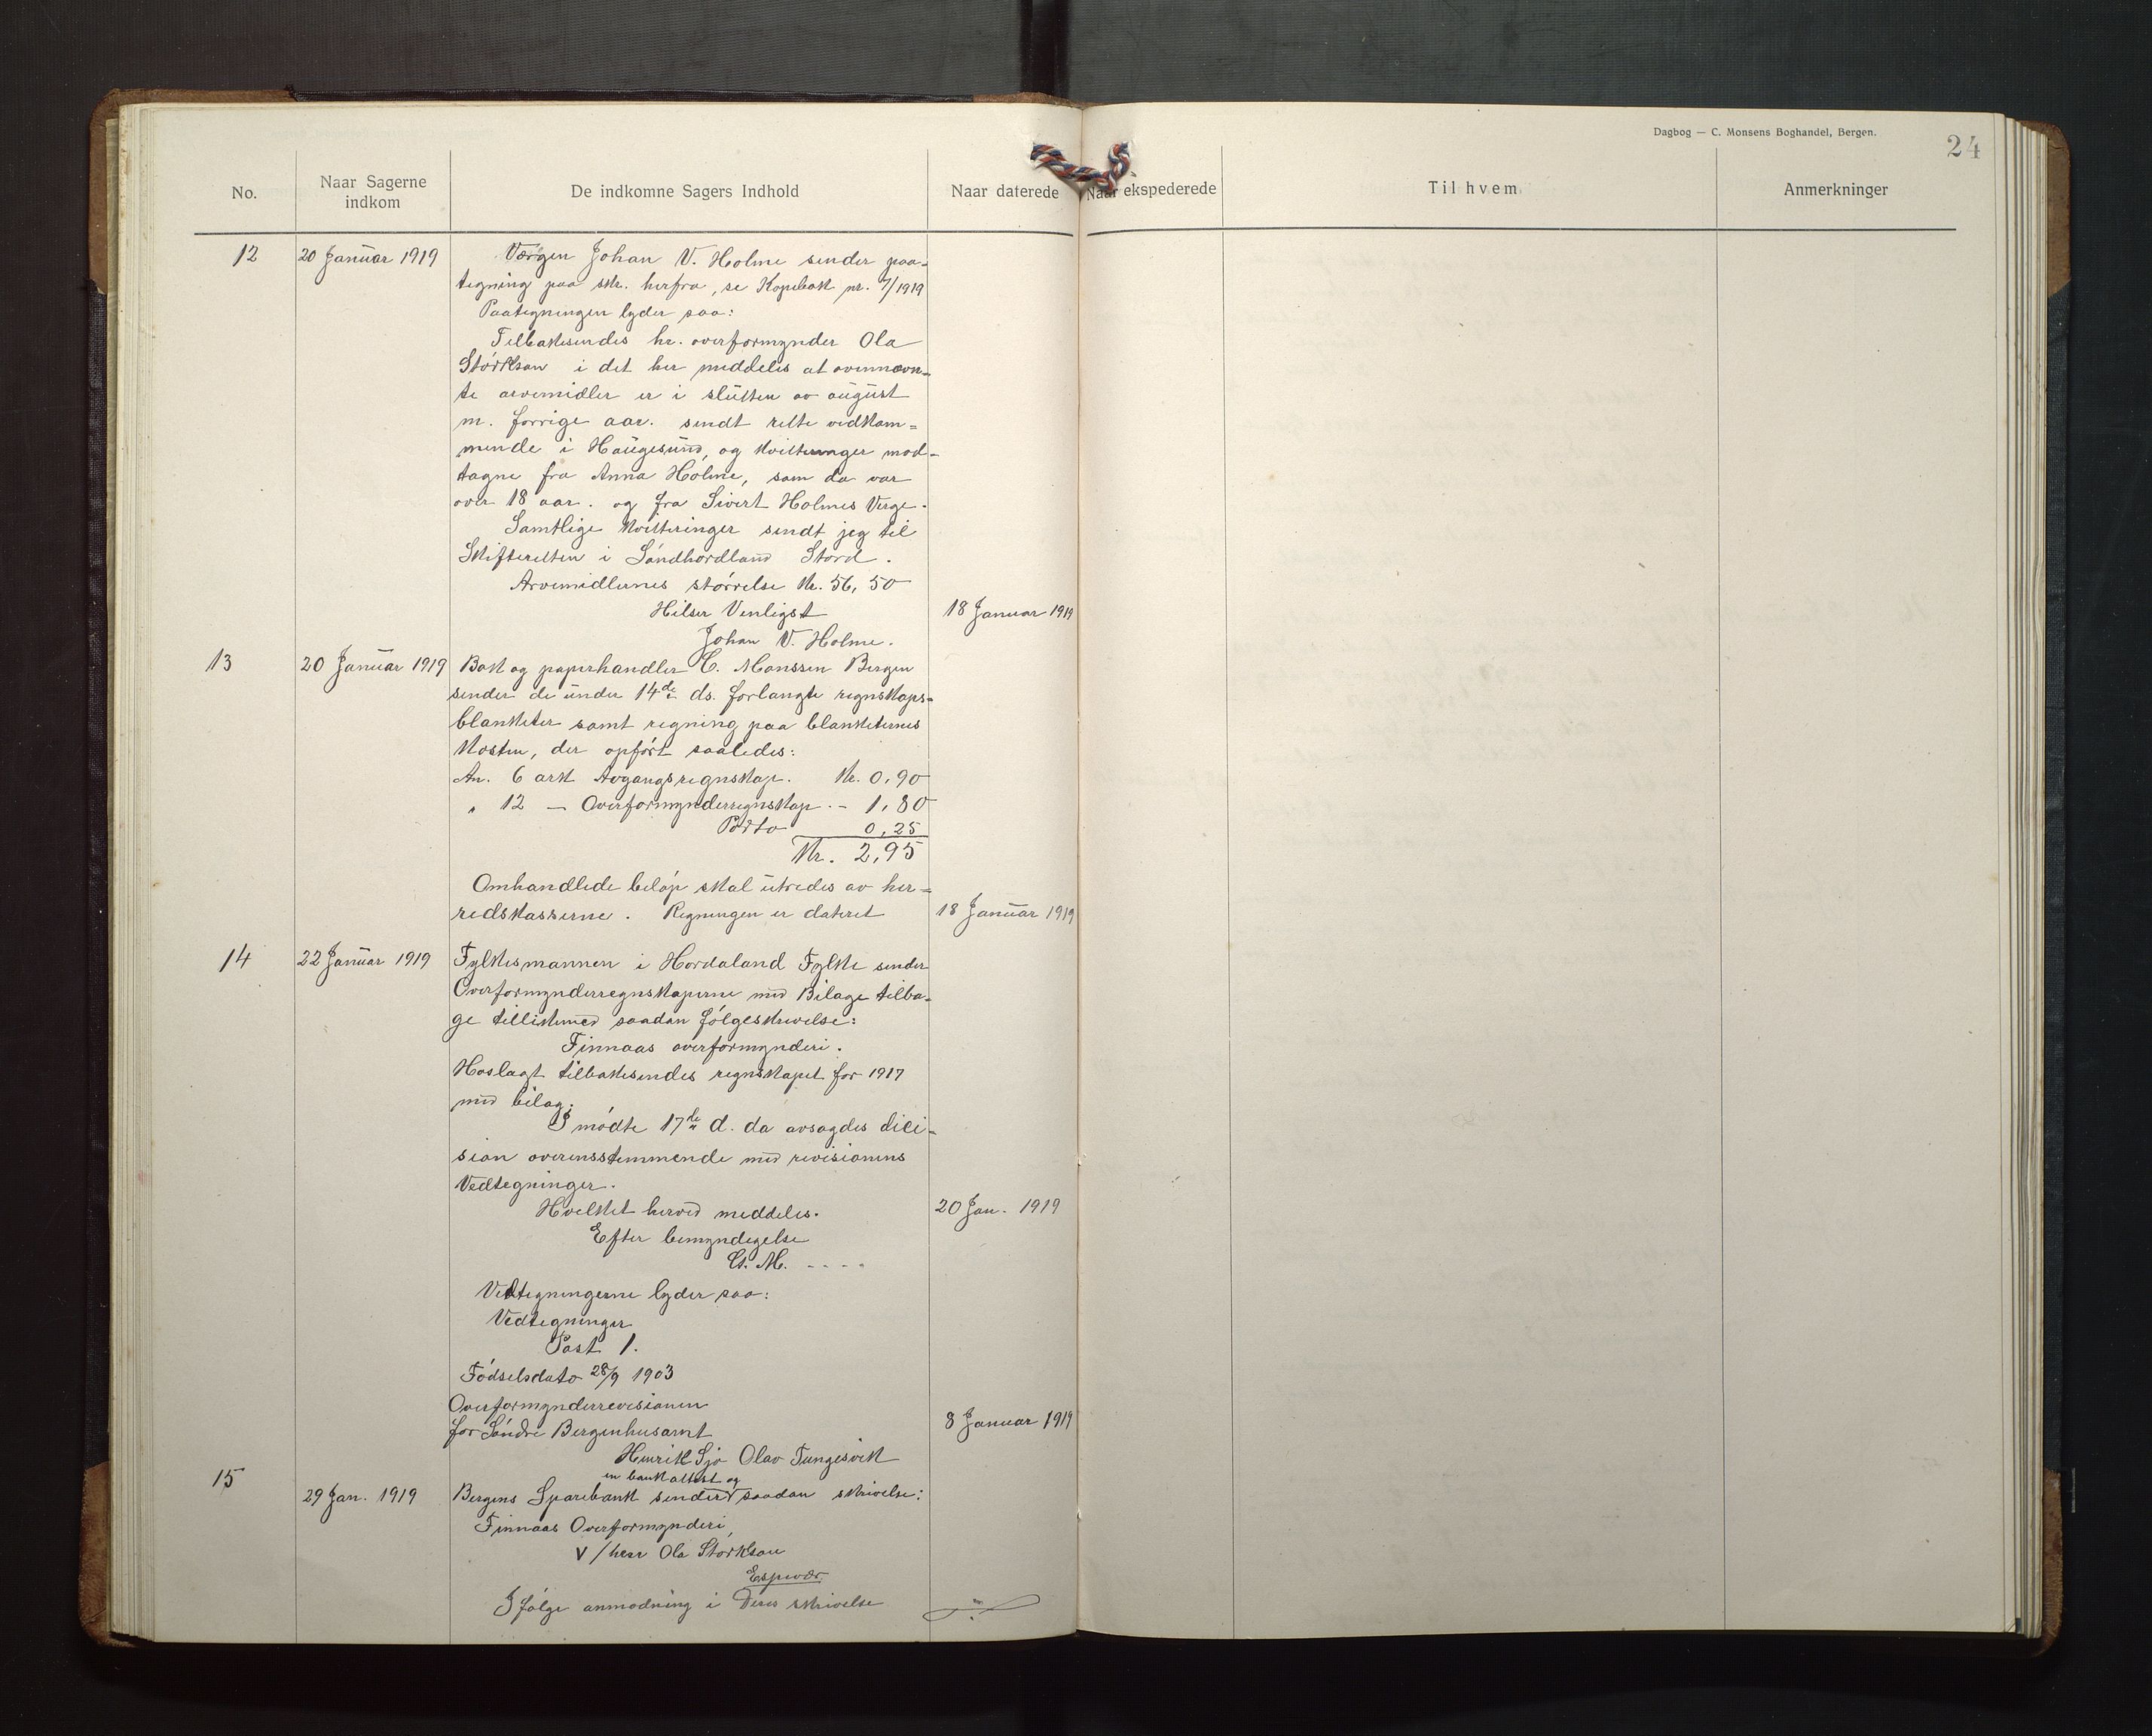 Dagbog — C. Monsens Boghandel, Bergen.
24
No.
Naar Sagerne indkom
De indkomne Sagers Indhold
Naar daterede
Naar ekspederede
Til hvem
Anmerkninger
12 20 Januar 1919 Værgen Johan V. Holme sender paa-
tegning paa skr. herfra, se Kopibok nr. 7/1919
Paategningen lyder saa:
Tilbakesendes hr. overformynder Ola
Størkson i det her meddeles at ovennævn-
te arvemidler er i slutten av august
m. forrige aar. sendt rette vedkom-
mende i Haugesund, og kvitteringer mod-
tagne fra Anna Holme, som da var
over 18 aar. og fra Sivert Holmes Verge.
Samtlige kvitteringer sendt jeg til
Skifteretten i Søndhordland Stord.
Arvemidlernes størrelse kr. 56,50
Hilser Venligst 18 Januar 1919
Johan V. Holme.
13 20 Januar 1919 Bok og papirhandler C. Monssen Bergen
sender de under 14de ds. forlangte regnskaps-
blanketer samt regning paa blanketernes
kosten, der opført saaledes:
An. 6 ark Avgangsregnskap. kr. 0,90
" 12 — Overformynderregnskap. - 1,80
Porto 0,25
Kr. 2,95
Omhandlede beløp skal utredes av her-
redskasserne. Regningen er dateret 18 Januar 1919
14 22 Januar 1919 Fylkesmannen i Hordaland Fylke sender
Overformynderregnskaperne med Bilage tilba-
ge tillikemed saadan følgeskrivelse:
Finnaas overformynderi.
Hoslagt tilbakesendes regnskapet for 1917
med bilag.
I mødte 17de d. da avsagdes dici-
sion overensstemmende med revisionens
Vedtegninger.
Hvilket herved meddeles. 20 Jan. 1919
Efter bemyndigelse
M. - - - -
Vedtegningerne lyder saa:
Vedtegninger
Post 1.
Fødselsdato 28/9 1903
Overformynderrevisionen
for Søndre Bergenhusamt 8 Januar 1919
Henrik Sjo Olav Tungesvik
15
en bankattest og
29 Jan. 1919 Bergens Sparebank sender saadan skrivelse:
Finnaas Overformynderi,
v/herr Ola Størkson
Espevær.
I følge anmodning i Deres skrivelse